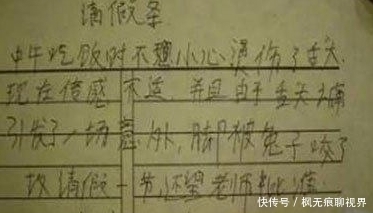 请假条
中午吃饭时不想小心烫伤了舌头
现在倍感不适.并且由于舌头太痛
引发了一场意外,脚被兔子咬了
故请假一节还望老师批准
快传号/枫无痕聊视界